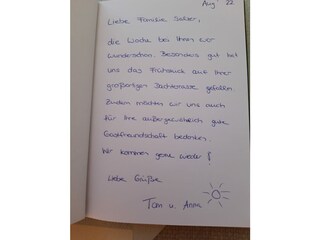 Aug 22
Liebe Familie Salzer,
die Woche bei Ihnen war
wunderschön. Besonders gut hat
uns das Frühstück auf Ihrer
großartigen Dachterrasse gefallen.
Zudem möchten wir uns auch
für Ihre außergewöhnlich gute
Gastfreundschaft bedanken.
Wir kommen gerne wieder!
Liebe Grüße
Tom u. Anna